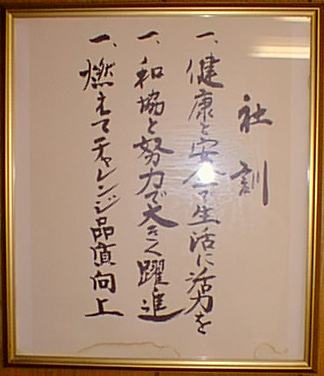 社訓
一、健康と安全で生活に活力を
一、和協と努力で大きく躍進
一、燃えてチャレンジ品質向上